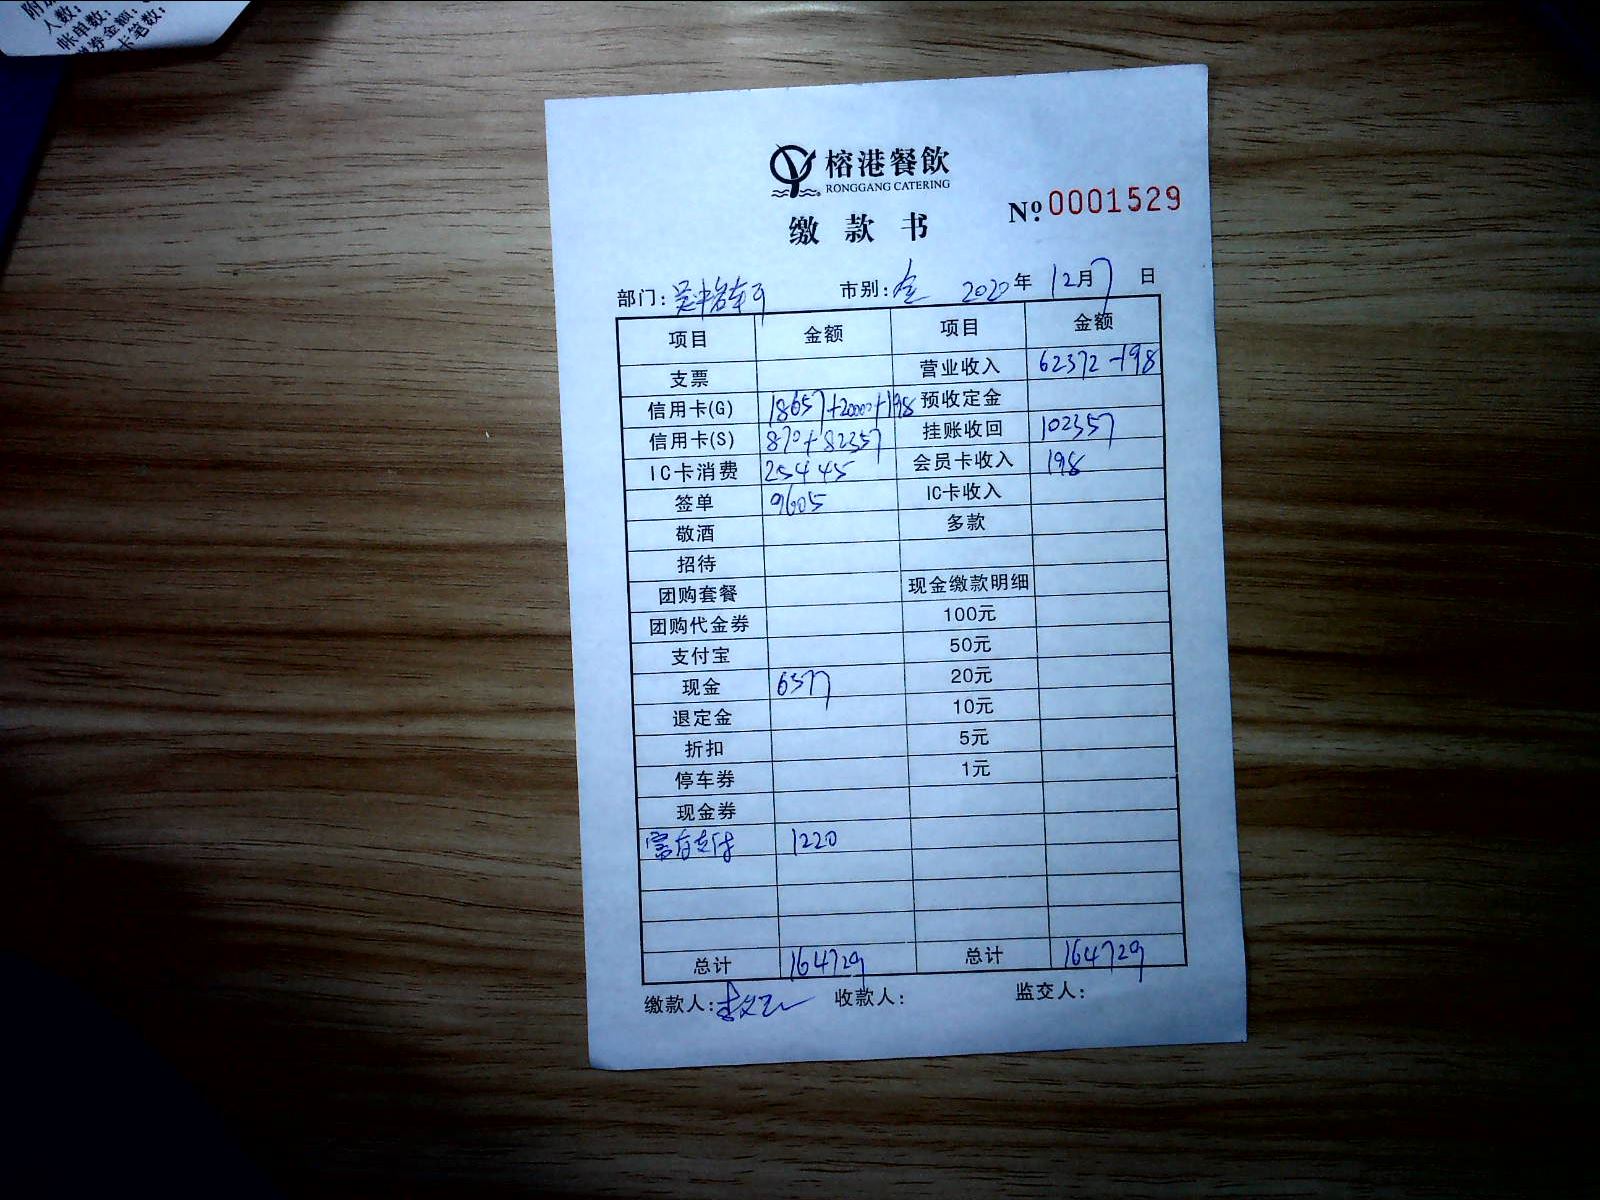 人数：
帐单数：
券金额：
卡笔数：
榕港餐飲
RONGGANG CATERING
缴款书
No.0001529
部门： 市别：全 2020年12月7日
项目 金额 项目 金额
支票 营业收入 62372-198
信用卡(G) 18657+20000+198 预收定金
信用卡(S) 870+82357 挂账收回 102357
IC卡消费 25445 会员卡收入 198
签单 9605 IC卡收入
敬酒 多款
招待
团购套餐 现金缴款明细
团购代金券 100元
支付宝 50元
现金 6377 20元
退定金 10元
折扣 5元
停车券 1元
现金券
富有支付 1220
总计 164729 总计 164729
缴款人： 收款人： 监交人：